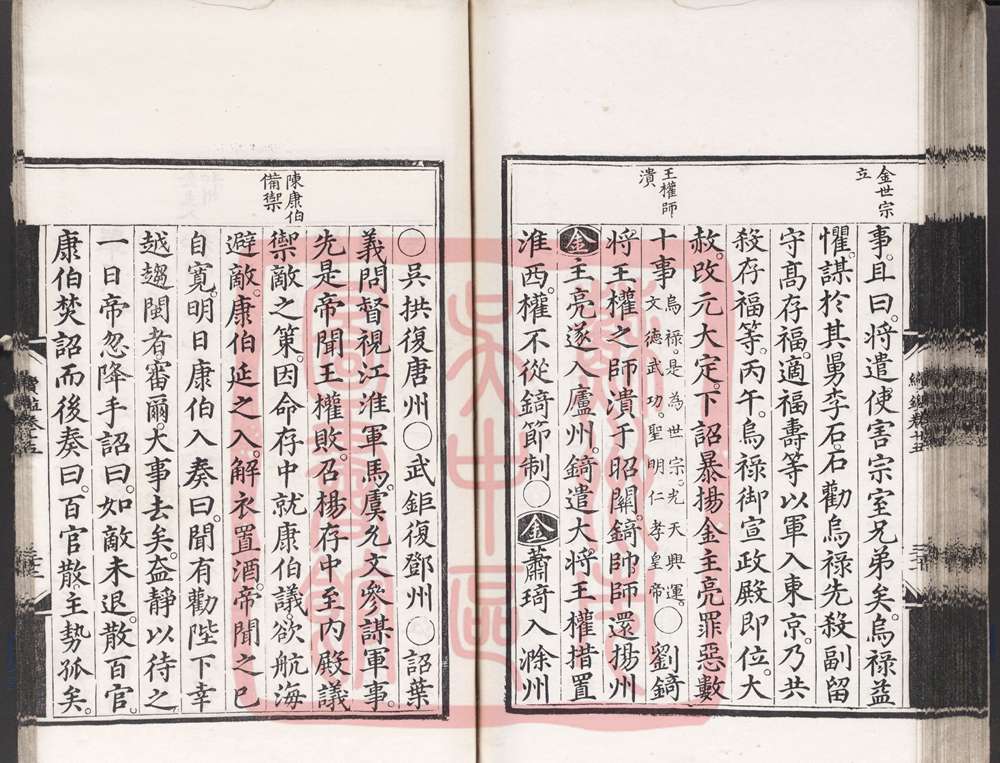 金世宗
立
事。且曰。將遣使害宗室兄弟矣。烏祿益
懼。謀於其舅李石。石勸烏祿先殺副留
守髙存福。適福壽等以軍入東京。乃共
殺存福等。丙午。烏祿御宣政殿即位。大
赦。改元大定。下詔暴揚金主亮罪惡數
十事烏祿。是為世宗。光天興運。
文德武功。聖明仁孝皇帝〇劉錡
王權師
潰
將王權之師潰于昭關。錡帥師還揚州
金主亮遂入廬州。錡遣大將王權措置
淮西。權不從錡節制〇金蕭琦入滁州
陳康伯
備禦
〇吳拱復唐州〇武鉅復鄧州〇詔葉
義問督視江淮軍馬。虞允文參謀軍事。
先是帝聞王權敗。召楊存中至內殿議
禦敵之策。因命存中就康伯議。欲航海
避敵。康伯延之入。解衣置酒。帝聞之已
自寬。明日康伯入奏曰。聞有勸陛下幸
越趨閩者。審爾。大事去矣。盍靜以待之
一日帝忽降手詔曰。如敵未退。散百官。
康伯焚詔而後奏曰。百官散。主勢孤矣。